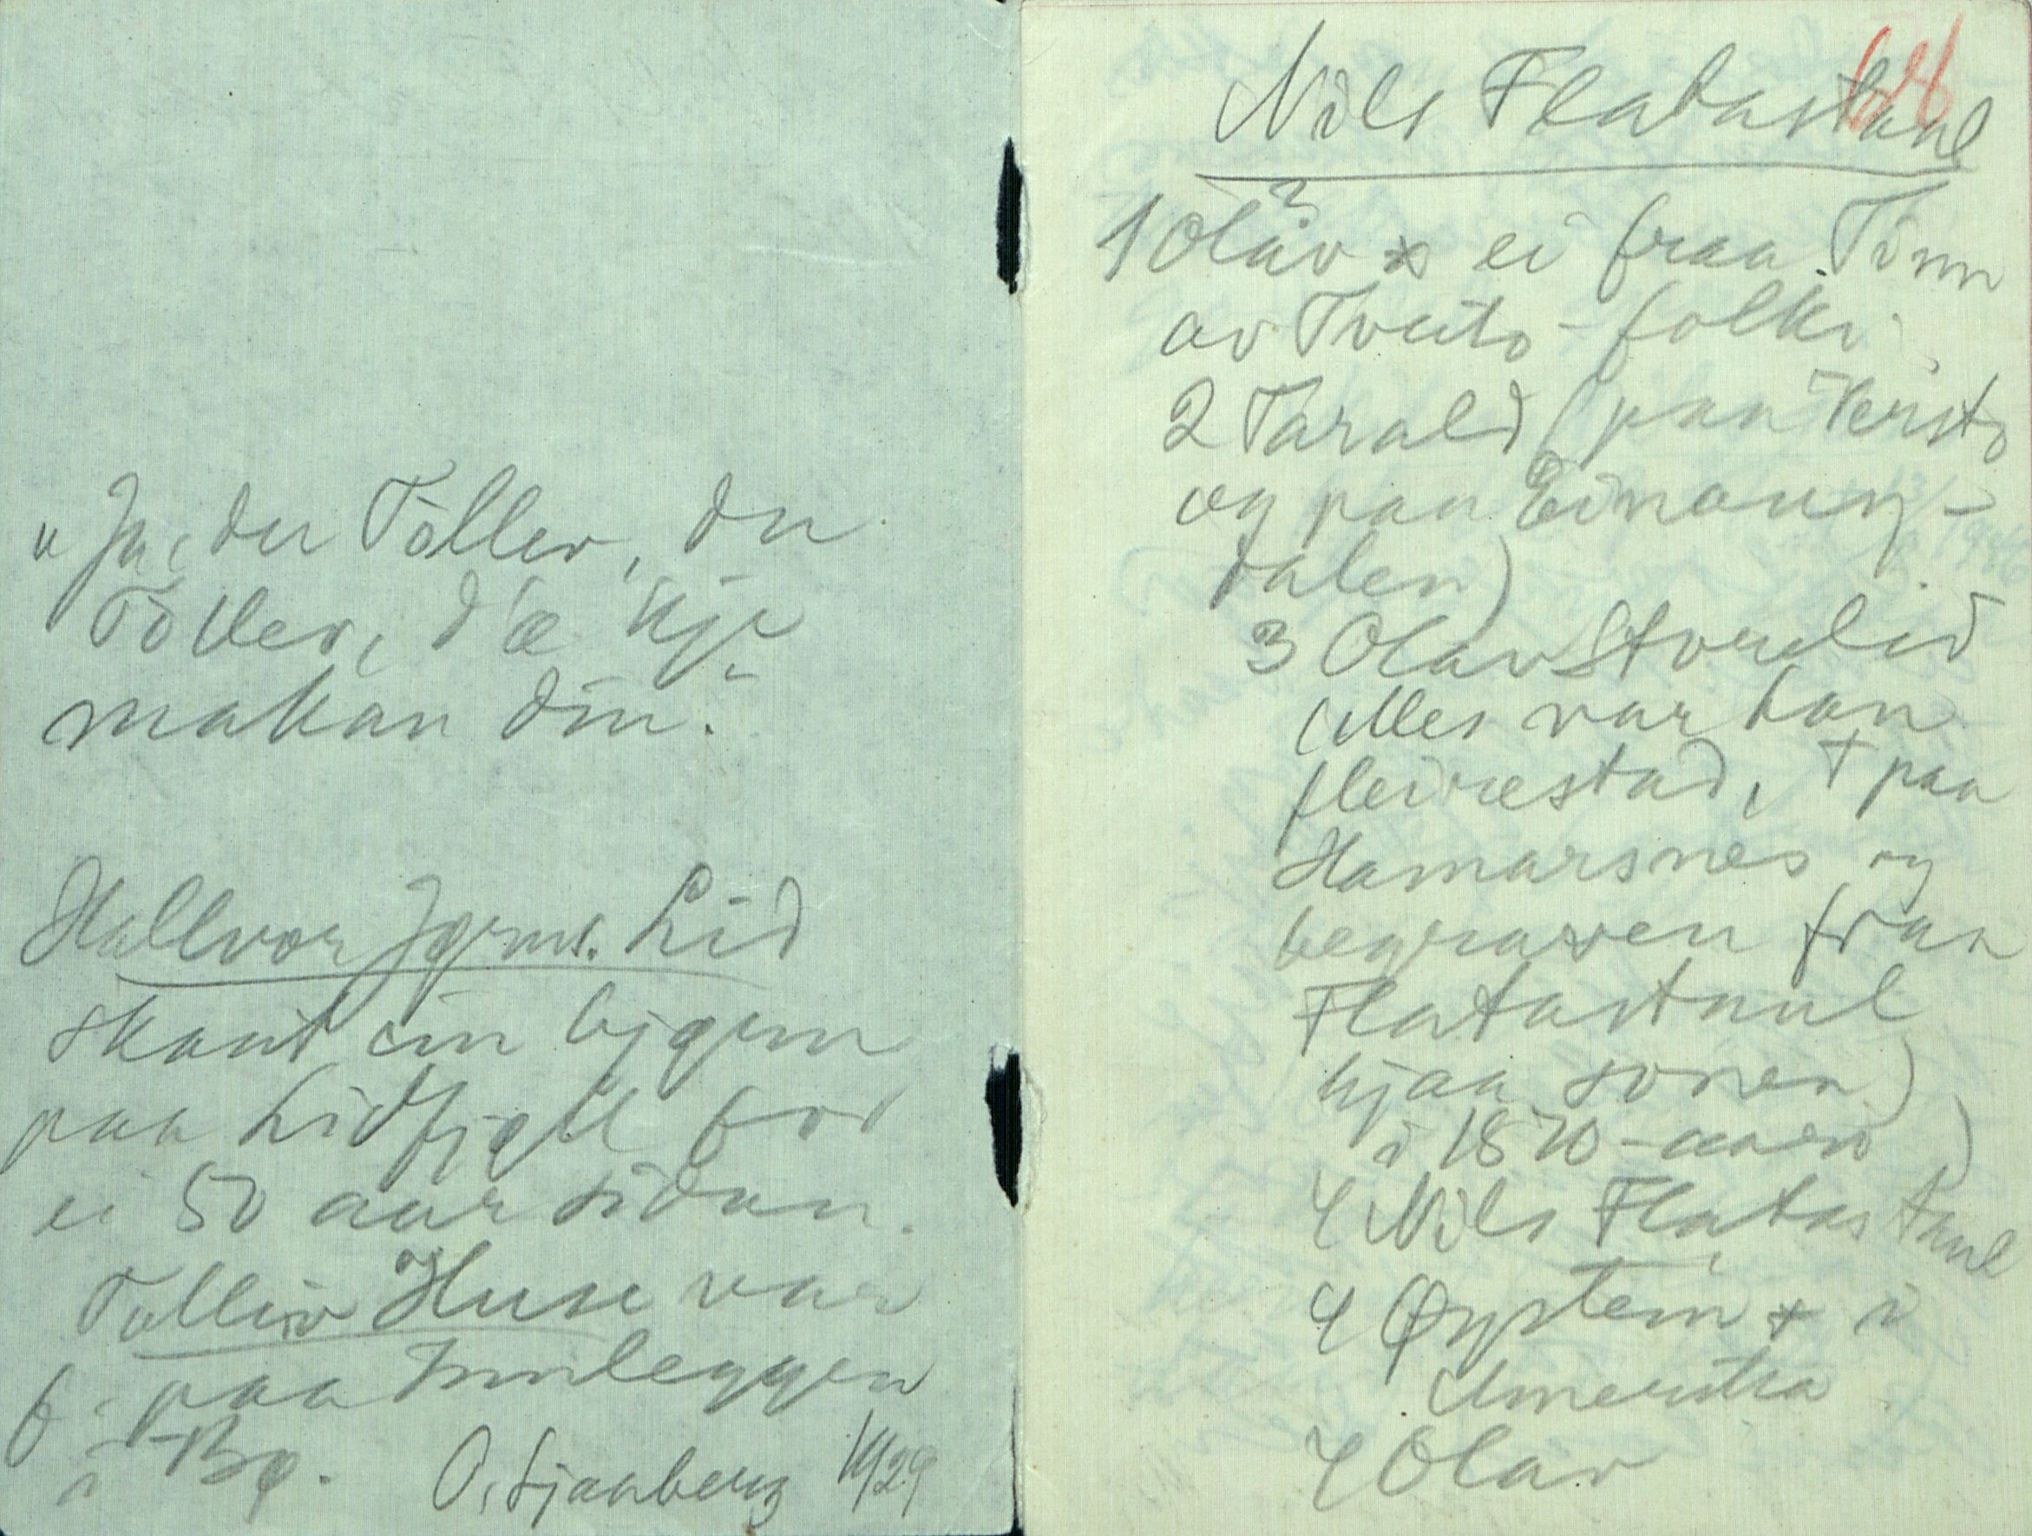 "Ja, du Tøllev, du
Tøllev, d'æ kje
makan din."
Hallvor Jørns. Lid
skaut ein bjørn
paa Lidfjell for
ei 50 aar sidan.
Talleiv Huse var
f. paa Innleggen
i Bø. O. Ljaaberg 14/29
Nils Flatastaul
1 Olav x ei fraa Tinn
av Tveito-folki
2 Tarald (paa Versto
og paa Einaung-
dalen)
3 Olav Storelid
(Elles var han
fleirestad, † paa
Hamarsnes og
begraven fraa
Flatastaul
hjaa sonen)
i 1870-aari)
4 Nils Flatastaul
4 Øystein + i
Amerika
4 Olav